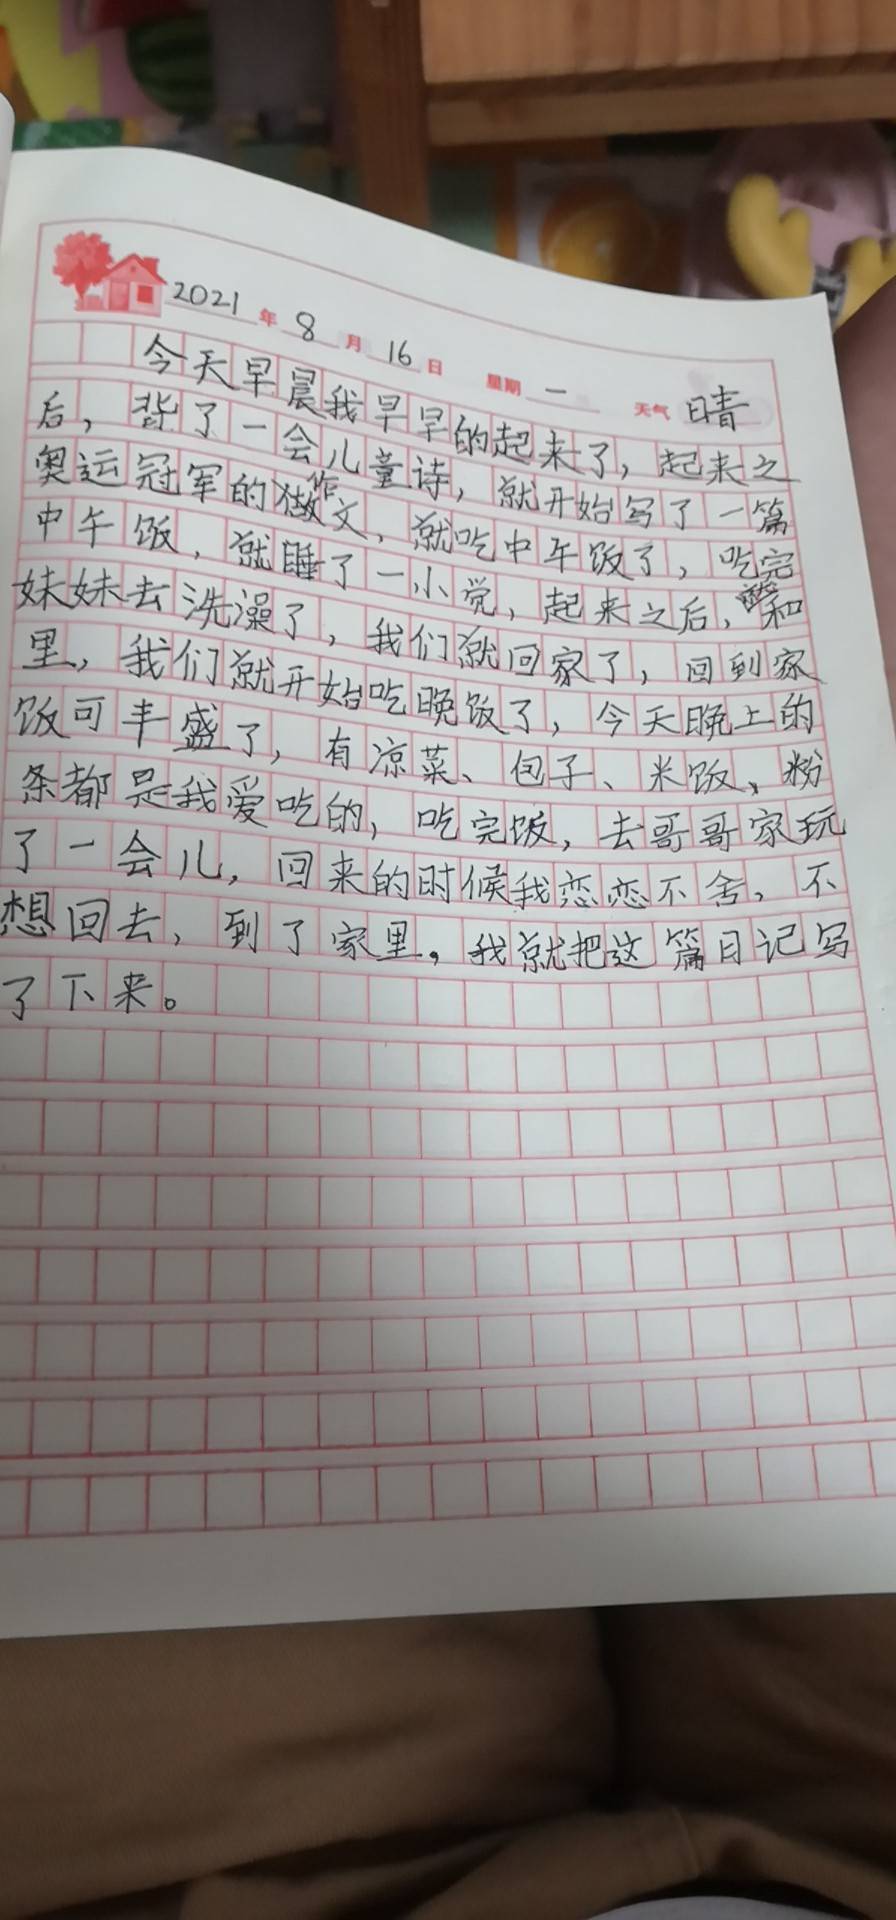 2021年8月16日 星期一 天气晴
今天早晨我早早的起来了，起来之
后，背了一会儿童诗，就开始写了一篇
奥运冠军的作文，就吃中午饭了，吃完
中午饭，就睡了一小觉，起来之后，和
妹妹去洗澡了，我们就回家了，回到家
里，我们就开始吃晚饭了，今天晚上的
饭可丰盛了，有凉菜、包子、米饭、粉
条都是我爱吃的，吃完饭，去哥哥家玩
了一会儿，回来的时候我恋恋不舍，不
想回去，到了家里。我就把这篇日记写
了下来。